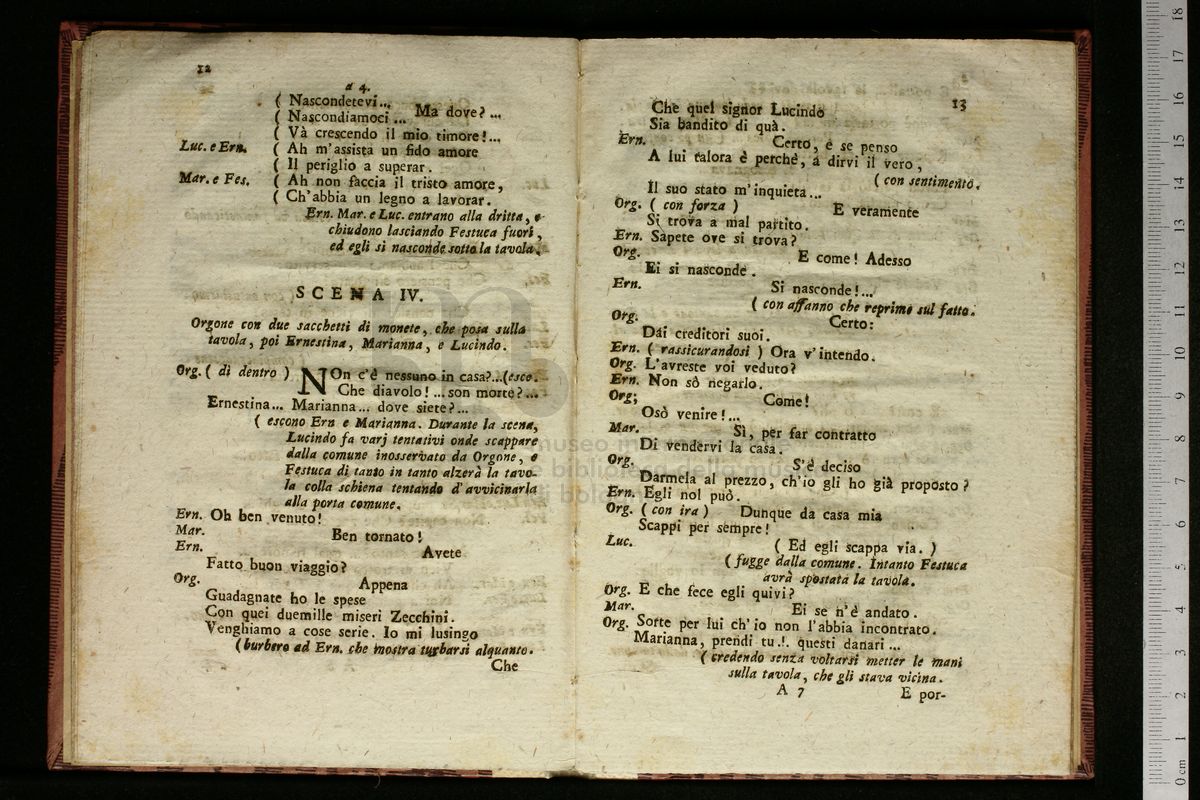 12
a 4.
( Nascondetevi...
( Nascondiamoci ... Ma dove? ...
( Và crescendo il mio timore!...
Luc. e Ern. ( Ah m'assista un fido amore
( Il periglio a superar.
Mar. e Fes. ( Ah non faccia il tristo amore,
( Ch'abbia un legno a lavorar.
Ern. Mar. e Luc. entrano alla dritta, e
chiudono lasciando Festuca fuori,
ed egli si nasconde sotto la tavola.
SCENA IV.
Orgone con due sacchetti di monete, che posa sulla
tavola, poi Ernestina, Marianna, e Lucindo.
Org. ( di dentro ) NOn c'è nessuno in casa?...(esce.
Che diavolo! ... son morte? ...
Ernestina... Marianna... dove siete?...
( escono Ern e Marianna. Durante la scena,
Lucindo fa varj tentativi onde scappare
dalla comune inosservato da Orgone, e
Festuca di tanto in tanto alzerà la tavo-
la colla schiena tentando d'avvicinarla
alla porta comune.
Ern. Oh ben venuto!
Mar. Ben tornato!
Ern. Avete
Fatto buon viaggio?
Org. Appena
Guadagnate ho le spese
Con quei duemille miseri Zecchini.
Venghiamo a cose serie. Io mi lusingo
(burbero ad Ern. che mostra turbarsi alquanto.
Che
13
Che quel signor Lucindo
Sia bandito di quà.
Ern. Certo, e se penso
A lui talora è perchè, a dirvi il vero,
( con sentimento.
Il suo stato m'inquieta...
Org. ( con forza ) E veramente
Si trova a mal partito.
Ern. Sapete ove si trova?
Org. E come! Adesso
Ei si nasconde.
Ern. Si nasconde!...
( con affanno che reprime sul fatto.
Org. Certo:
Dai creditori suoi.
Ern. ( rassicurandosi ) Ora v'intendo.
Org. L'avreste voi veduto?
Ern. Non sò negarlo.
Org; Come!
Osò venire! ...
Mar. Sì, per far contratto
Di vendervi la casa.
Org. S'è deciso
Darmela al prezzo, ch'io gli ho già proposto?
Ern. Egli nol può.
Org. ( con ira ) Dunque da casa mia
Scappi per sempre!
Luc. ( Ed egli scappa via. )
( fugge dalla comune. Intanto Festuca
avrà spostata la tavola.
Org. E che fece egli quivi?
Mar. Ei se n'è andato.
Org. Sorte per lui ch'io non l'abbia incontrato.
Marianna, prendi tu .!. questi danari ...
( credendo senza voltarsi metter le mani
sulla tavola, che gli stava vicina.
A 7 E por-